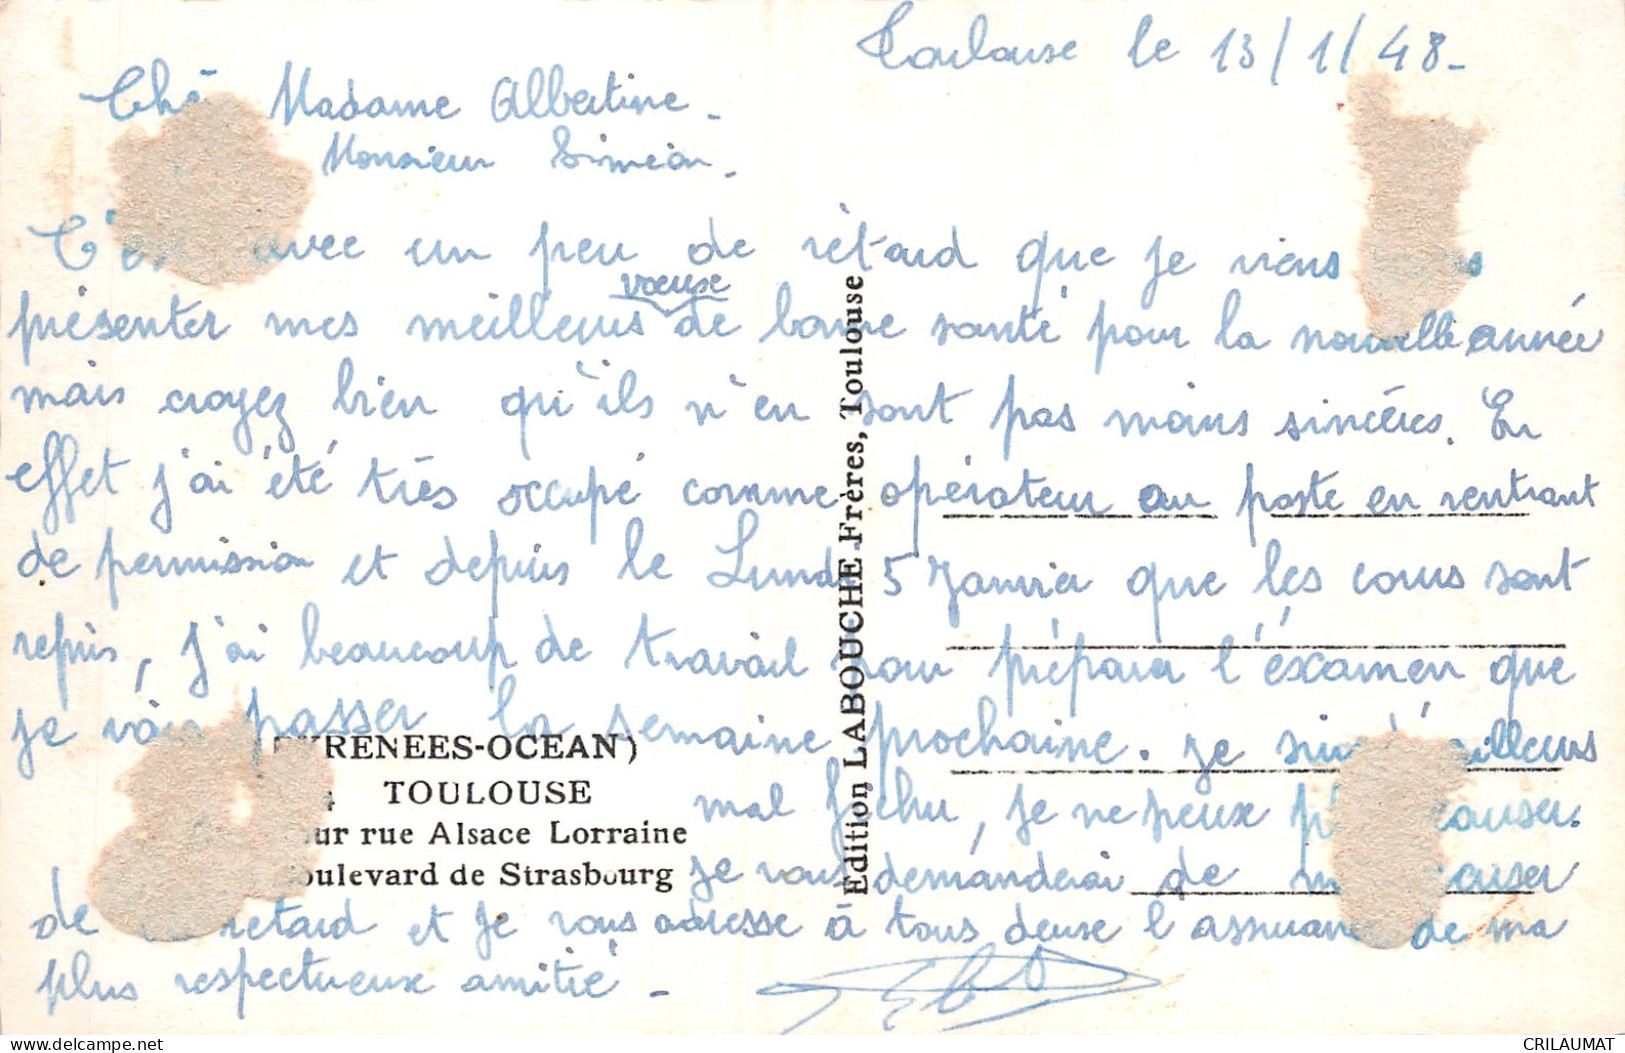 Toulouse le 13/1/48-
Madame Albertine -
Monsieur Siméon -
avec un peu de rétard que je viens
présenter mes meilleurs voeuse de bonne santé pour la nouvelle année
mais croyez bien qu'ils n'en sont pas moins sincères. En
effet j'ai été très occupé comme opérateur au poste en rentrant
de permission et depuis le Lundi 5 Janvier que les cours sont
repris, j'ai beaucoup de travail pour préparer l'éxamen que
je vais passer la semaine prochaine. je suis d'ailleurs
mal fichu, je ne peux
je vous demanderai de
de retard et je vous adresse à tous deuse l'assurance de ma
plus respectueux amitié -
RENEES-OCEAN)
TOULOUSE
rue Alsace Lorraine
oulevard de Strasbourg
Edition LABOUCHE Frères, Toulouse
CRILAUMAT